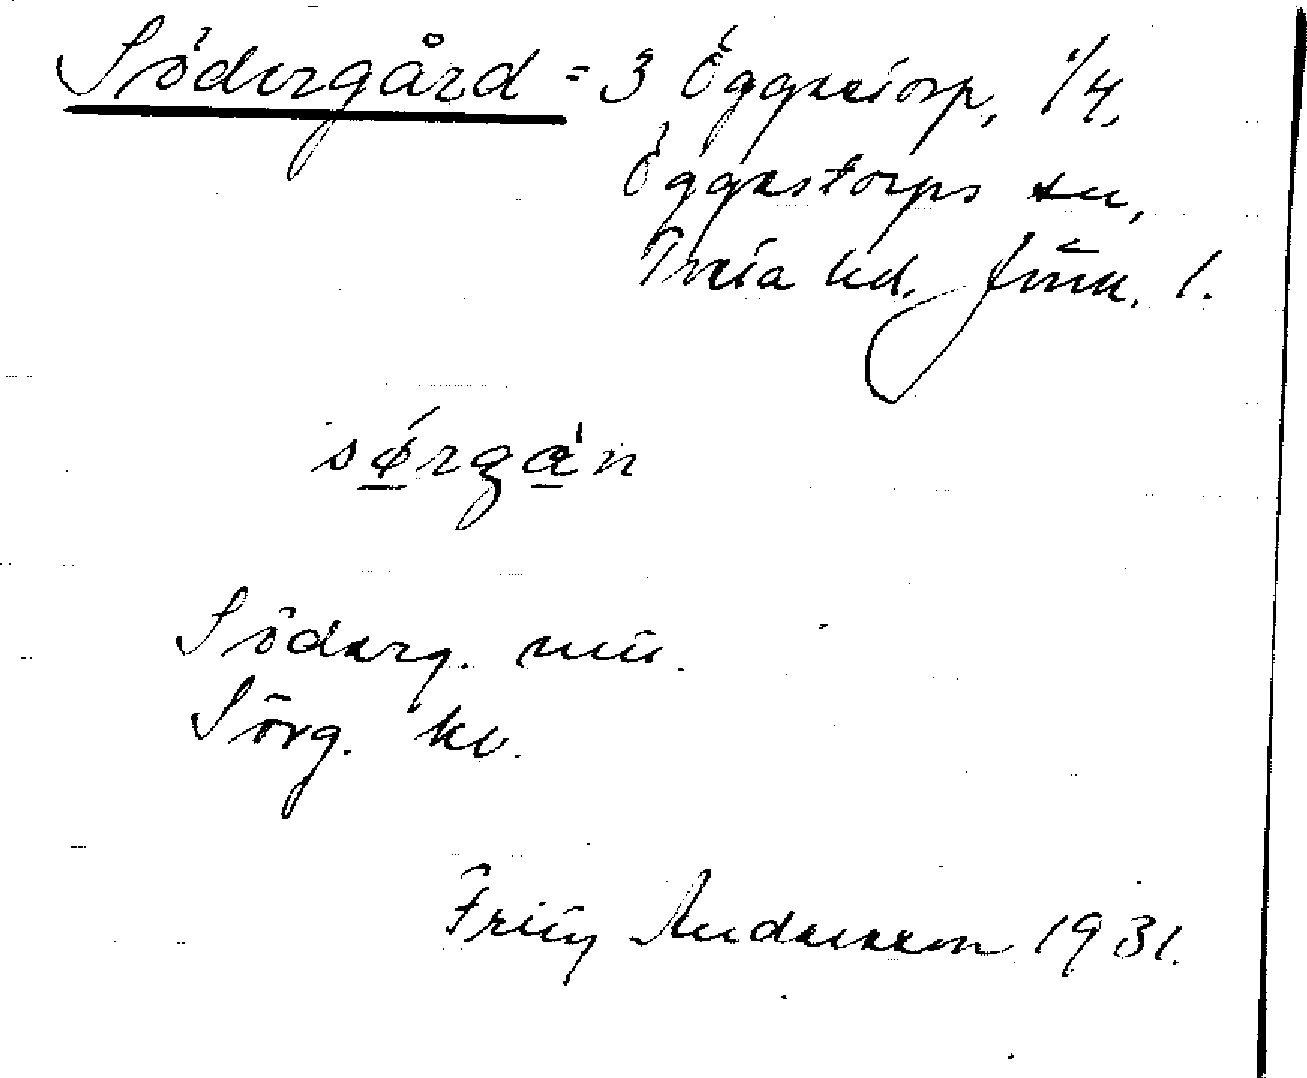 Södergård = 3 Öggestorp, 1/4,
Öggestorps sn,
Tveta hd. Jönk. l.
sǿrgán
Söderg.
Sörg. kv.
Andersson 1931.